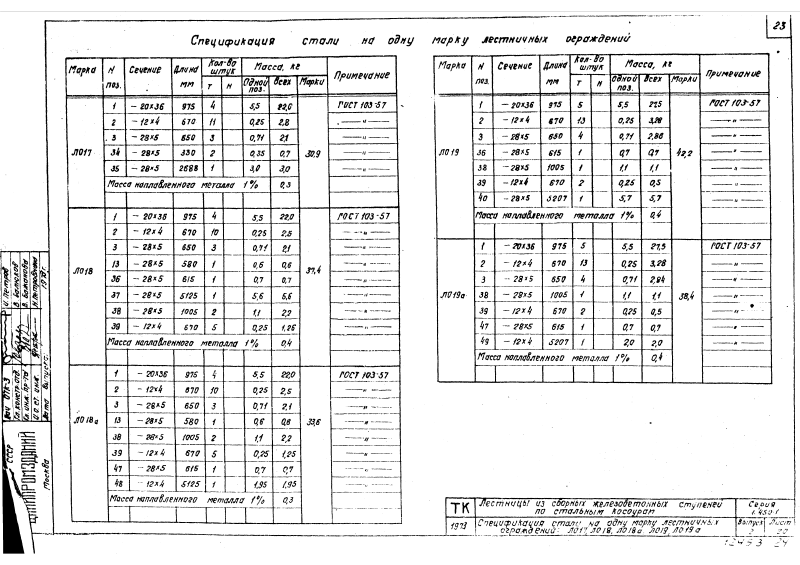 23
Спецификация стали на одну марку лестничных ограждений
Марка N поз. Сечение Длина мм Кол-во штук т н Масса, кг Одной поз. Всех Марки Примечание
ЛО17 30,9
1 –20×36 975 4 5,5 22,0 ГОСТ 103-57
2 –12×4 670 11 0,25 2,8 —"—
3 –28×5 650 3 0,71 2,1 —"—
34 –28×5 330 2 0,35 0,7 —"—
35 –28×5 2688 1 3,0 3,0 —"—
Масса наплавленного металла 1% 0,3
ЛО18 37,4
1 –20×36 975 4 5,5 22,0 ГОСТ 103-57
2 –12×4 670 10 0,25 2,5 —"—
3 –28×5 650 3 0,71 2,1 —"—
13 –28×5 580 1 0,6 0,6 —"—
36 –28×5 615 1 0,7 0,7 —"—
37 –28×5 5125 1 5,6 5,6 —"—
38 –28×5 1005 2 1,1 2,2 —"—
39 –12×4 670 5 0,25 1,25 —"—
Масса наплавленного металла 1% 0,4
ЛО18а 33,6
1 –20×36 975 4 5,5 22,0 ГОСТ 103-57
2 –12×4 670 10 0,25 2,5 —"—
3 –28×5 650 3 0,71 2,1 —"—
13 –28×5 580 1 0,6 0,6 —"—
38 –28×5 1005 2 1,1 2,2 —"—
39 –12×4 670 5 0,25 1,25 —"—
47 –28×5 615 1 0,7 0,7 —"—
48 –12×4 5125 1 1,95 1,95 —"—
Масса наплавленного металла 1% 0,3
Марка N поз. Сечение Длина мм Кол-во штук т н Масса, кг Одной поз. Всех Марки Примечание
ЛО19 42,2
1 –20×36 975 5 5,5 27,5 ГОСТ 103-57
2 –12×4 670 13 0,25 3,28 —"—
3 –28×5 650 4 0,71 2,86 —"—
36 –28×5 615 1 0,7 0,7 —"—
38 –28×5 1005 1 1,1 1,1 —"—
39 –12×4 670 2 0,25 0,5 —"—
40 –28×5 5207 1 5,7 5,7 —"—
Масса наплавленного металла 1% 0,4
ЛО19а 38,4
1 –20×36 975 5 5,5 27,5 ГОСТ 103-57
2 –12×4 670 13 0,25 3,28 —"—
3 –28×5 650 4 0,71 2,84 —"—
38 –28×5 1005 1 1,1 1,1 —"—
39 –12×4 670 2 0,25 0,5 —"—
47 –28×5 615 1 0,7 0,7 —"—
49 –12×4 5207 1 2,0 2,0 —"—
Масса наплавленного металла 1% 0,4
СССР
ЦНИИПРОМЗДАНИЙ
Москва
ТК Лестницы из сборных железобетонных ступеней по стальным косоурам Серия 1.450-1
1973 Спецификация стали на одну марку лестничных ограждений: ЛО17, ЛО18, ЛО18а, ЛО19, ЛО19а Выпуск Лист
24